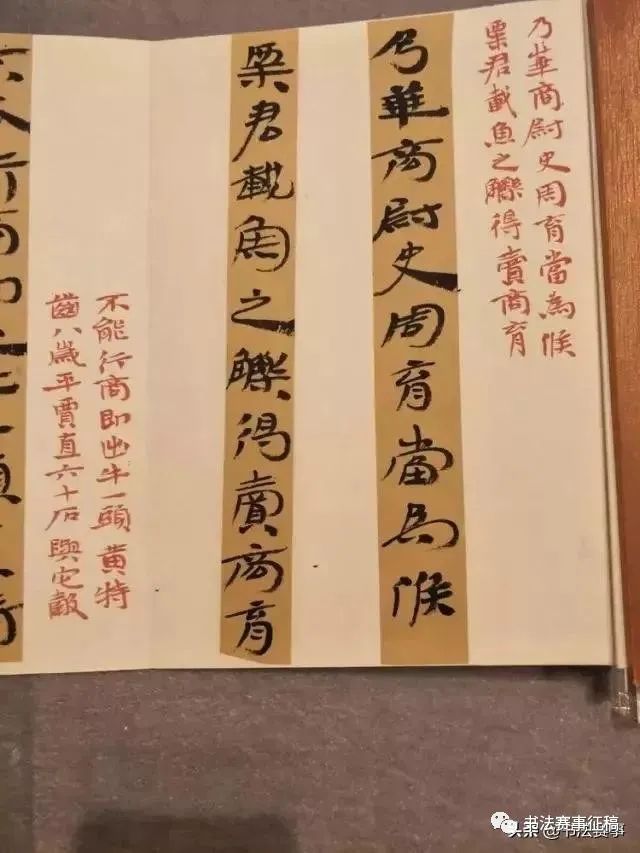 乃華商尉史周育當為候
粟君載魚之觻得賣商育
乃華商尉史周育當為候
粟君載魚之觻得賣商育
不能行商即出牛一頭黃特
齒八歲平賈直六十石與它穀
书法赛事征稿
头条 @书法赛事